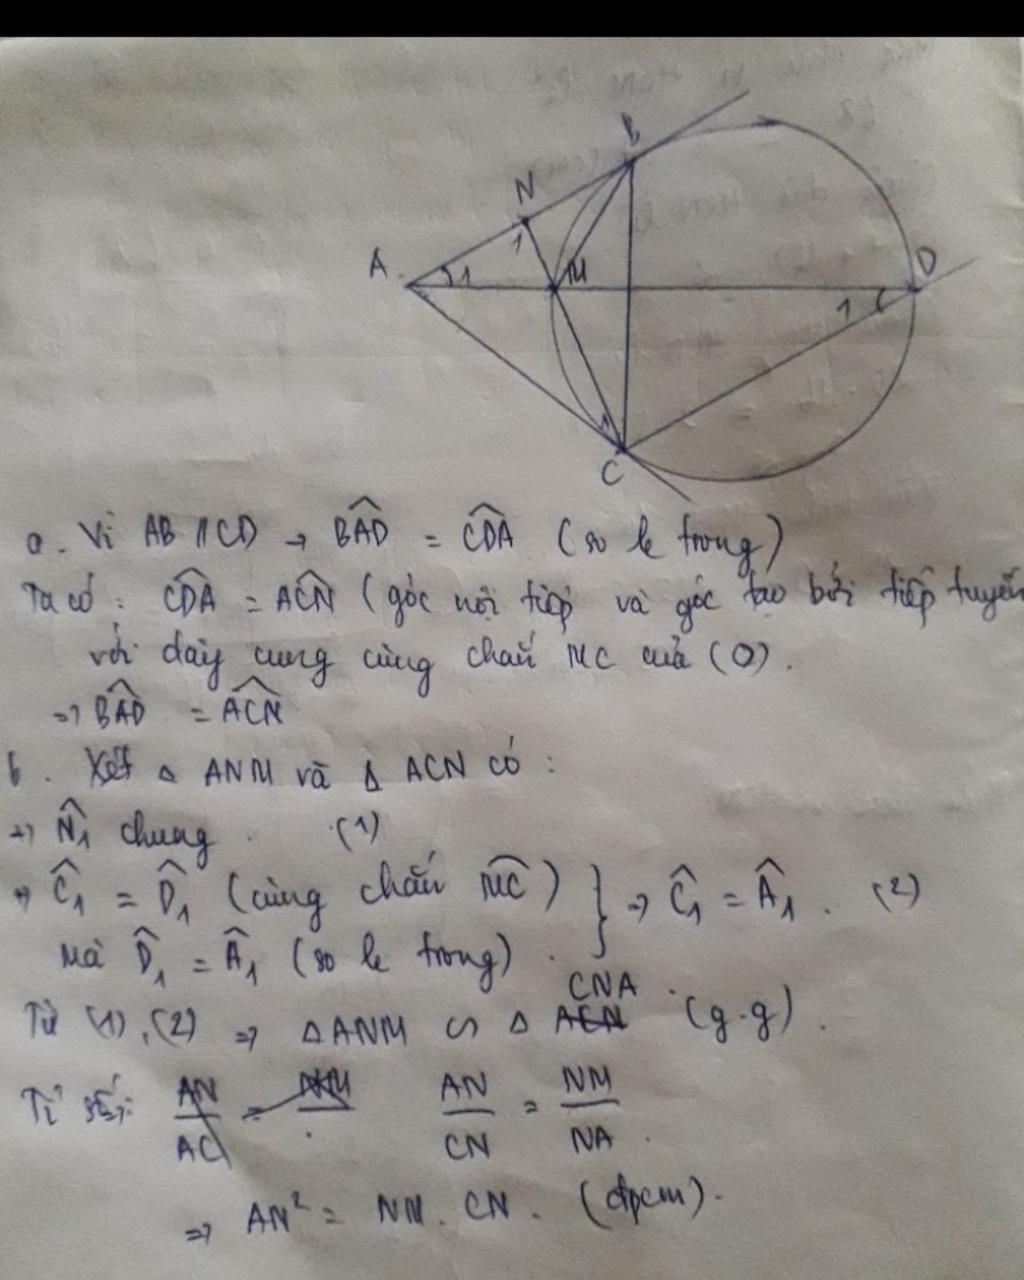 B
N
1
A
1
M
D
1
1
C
a. Vì AB // CD → B̂AD = ĈDA (so le trong)
Ta có: ĈDA = ÂCN (góc nội tiếp và góc tạo bởi tiếp tuyến
với dây cung cùng chắn MC của (O).
=> B̂AD = ÂCN
b. Xét △ ANM và △ ACN có:
=> N̂₁ chung. (1)
=> Ĉ₁ = D̂₁ (cùng chắn MC) } => Ĉ₁ = Â₁. (2)
Mà D̂₁ = Â₁ (so le trong).
CNA
Từ (1), (2) => △ ANM ∽ △ ACN (g.g).
Tỉ số: AN/AC = NM AN/CN = NM/NA.
=> AN² = NM. CN. (đpcm).